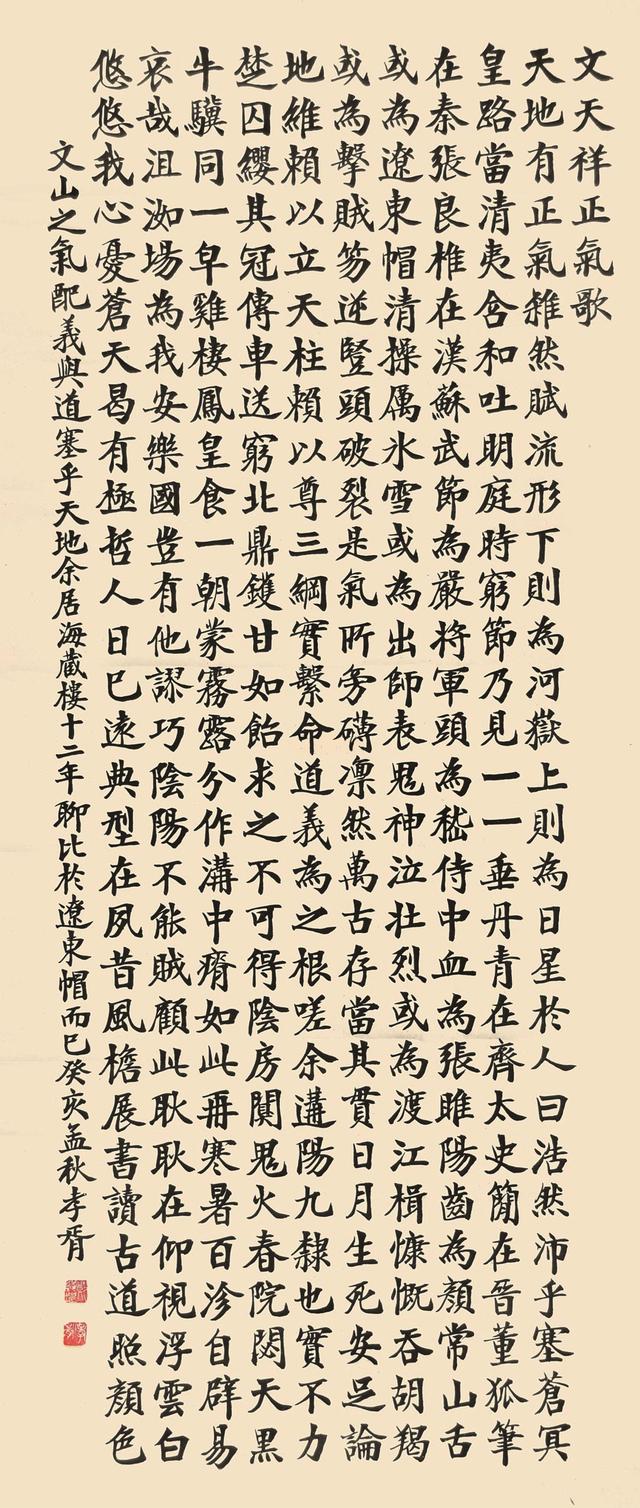 文天祥正氣歌
天地有正氣雜然賦流形下則為河嶽上則為日星於人曰浩然沛乎塞蒼冥
皇路當清夷含和吐明庭時窮節乃見一一垂丹青在齊太史簡在晉董狐筆
在秦張良椎在漢蘇武節為嚴將軍頭為嵇侍中血為張睢陽齒為顏常山舌
或為遼東帽清操厲冰雪或為出師表鬼神泣壯烈或為渡江楫慷慨吞胡羯
或為擊賊笏逆豎頭破裂是氣所旁礴凜然萬古存當其貫日月生死安足論
地維賴以立天柱賴以尊三綱實繫命道義為之根嗟余遘陽九隸也實不力
楚囚纓其冠傳車送窮北鼎鑊甘如飴求之不可得陰房闃鬼火春院閟天黑
牛驥同一皁雞棲鳳皇食一朝蒙霧露分作溝中瘠如此再寒暑百沴自辟易
哀哉沮洳場為我安樂國豈有他謬巧陰陽不能賊顧此耿耿在仰視浮雲白
悠悠我心憂蒼天曷有極哲人日已遠典型在夙昔風檐展書讀古道照顏色
文山之氣配義與道塞乎天地余居海藏樓十二年聊比於遼東帽而已癸亥孟秋孝胥